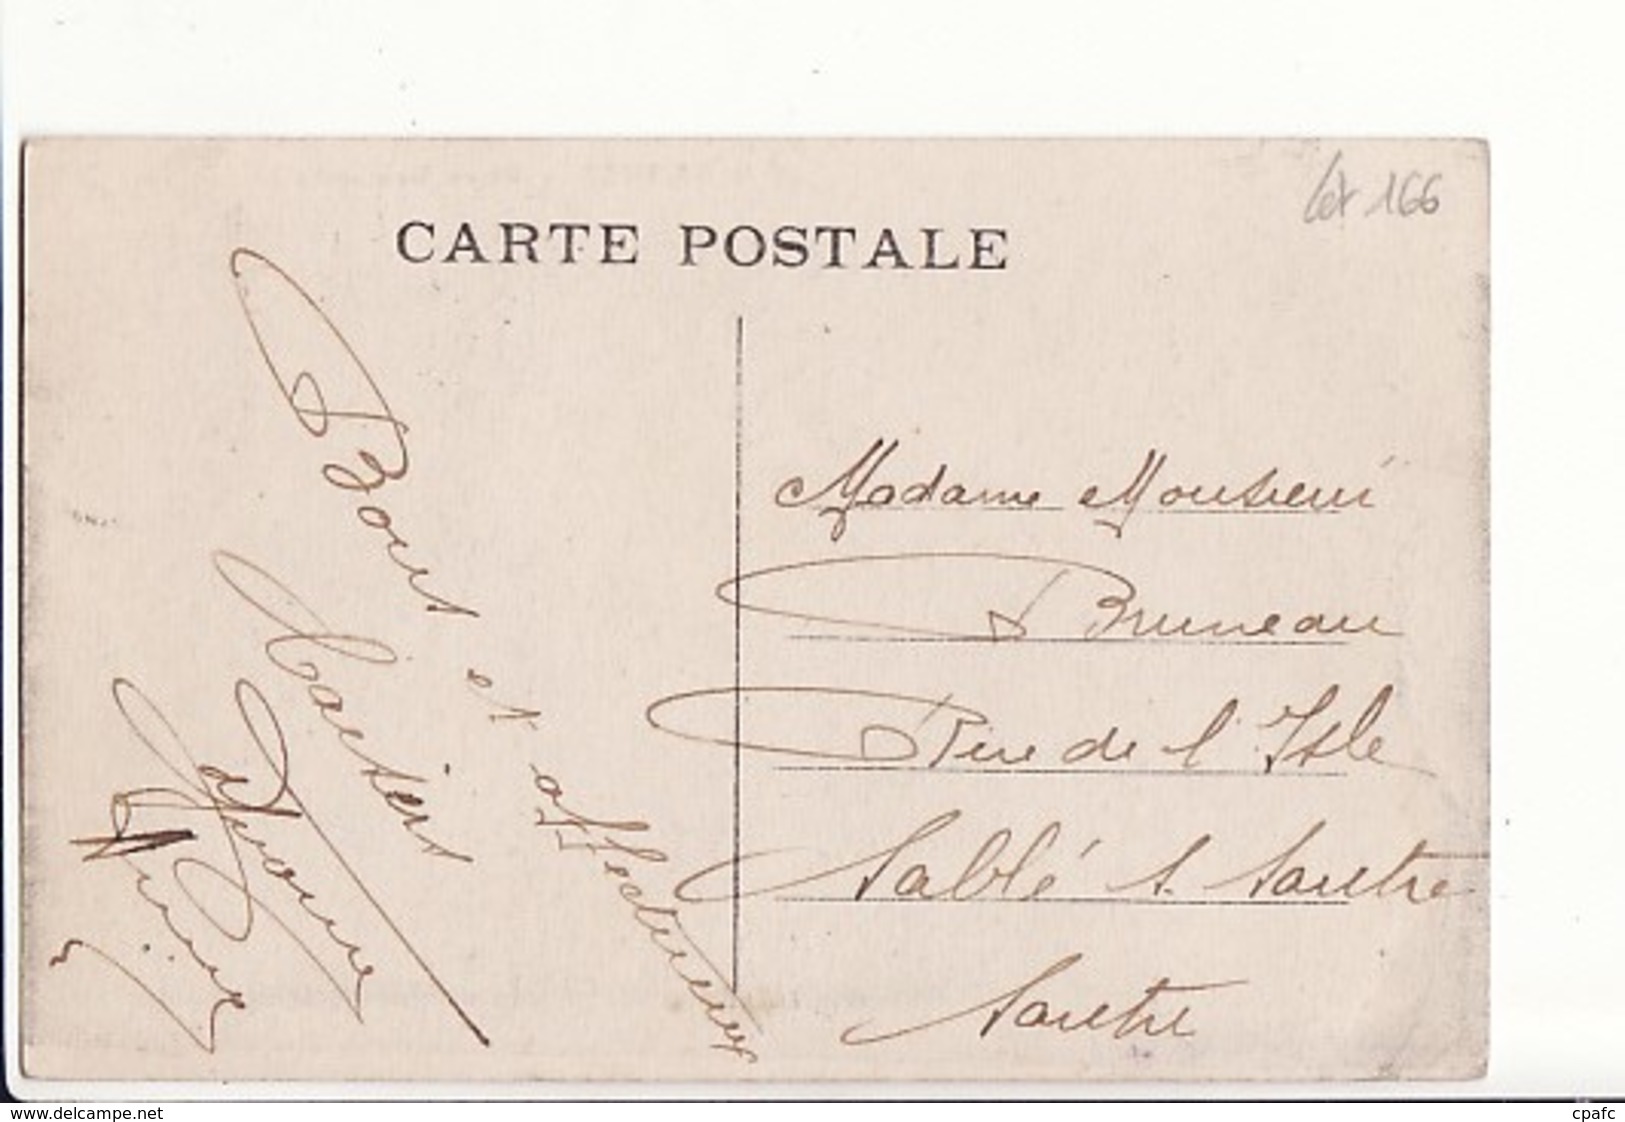 Let 166
CARTE POSTALE
Bons et affectueux
baisers
Yvonne
Madame Monsieur
Bruneau
Rue de l'Isle
Sablé s. Sarthe
Sarthe
www.delcampe.net
cpafc